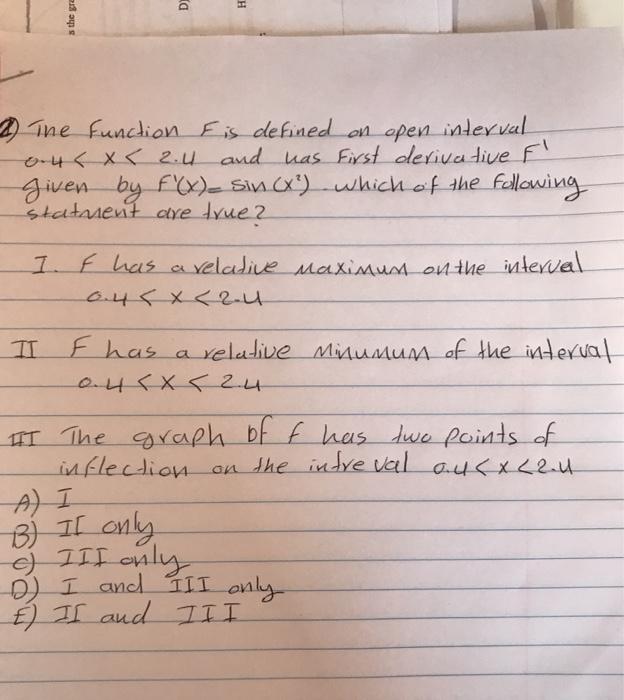 s the gra
D)
H
2) The function F is defined on open interval
0.4 < x < 2.4 and has First derivative F'
given by F'(x) = sin (x²). which of the following
statment are true?
I. f has a relative maximum on the interval
0.4 < x < 2.4
II F has a relative minumum of the interval
0.4 < x < 2.4
III The graph of f has two points of
inflection on the intreval 0.4 < x < 2.4
A) I
B) II only
c) III only
D) I and III only
E) II and III